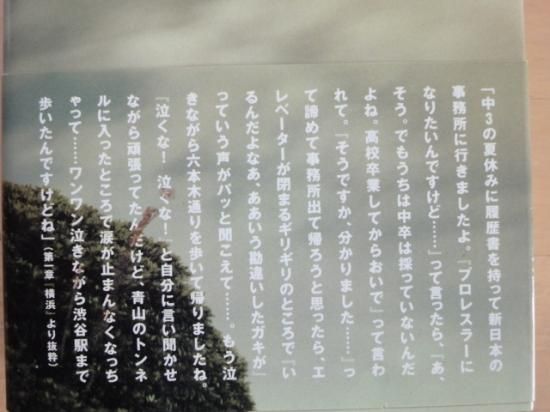 「中3の夏休みに履歴書を持って新日本の
事務所に行きましたよ。『プロレスラーに
なりたいんですけど……』って言ったら、『あ、
そう。でもうちは中卒は採っていないんだ
よね。高校卒業してからおいで』って言わ
れて。『そうですか、分かりました……』っ
て諦めて事務所出て帰ろうと思ったら、エ
レベーターが閉まるギリギリのところで『い
るんだよなあ、ああいう勘違いしたガキが』
っていう声がパッと聞こえて……。もう泣
きながら六本木通りを歩いて帰りましたね。
『泣くな！　泣くな！』と自分に言い聞かせ
ながら頑張ってたんだけど、青山のトンネ
ルに入ったところで涙が止まんなくなっち
ゃって……ワンワン泣きながら渋谷駅まで
歩いたんですけどね」（第一章『横浜』より抜粋）